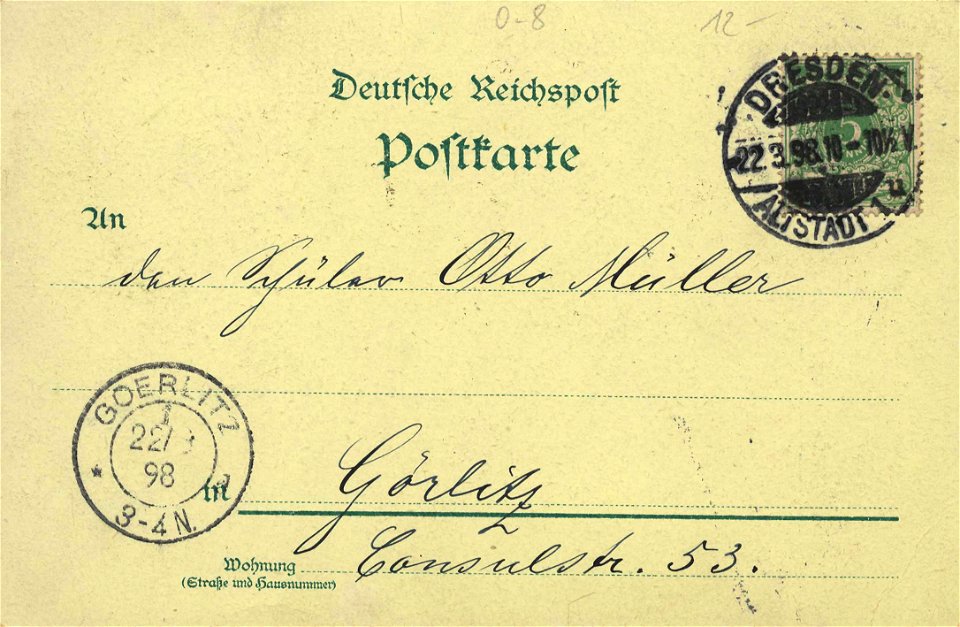 0-8 12-
Deutsche Reichspost
Postkarte
DRESDEN-
22.3.98.10-10½V.
ALTSTADT 1 u
5
An
den Schüler Otto Müller
GOERLITZ
1
22/3
98
* 
3-4N.
in Görlitz
Wohnung
(Straße und Hausnummer)
Consulstr. 53.